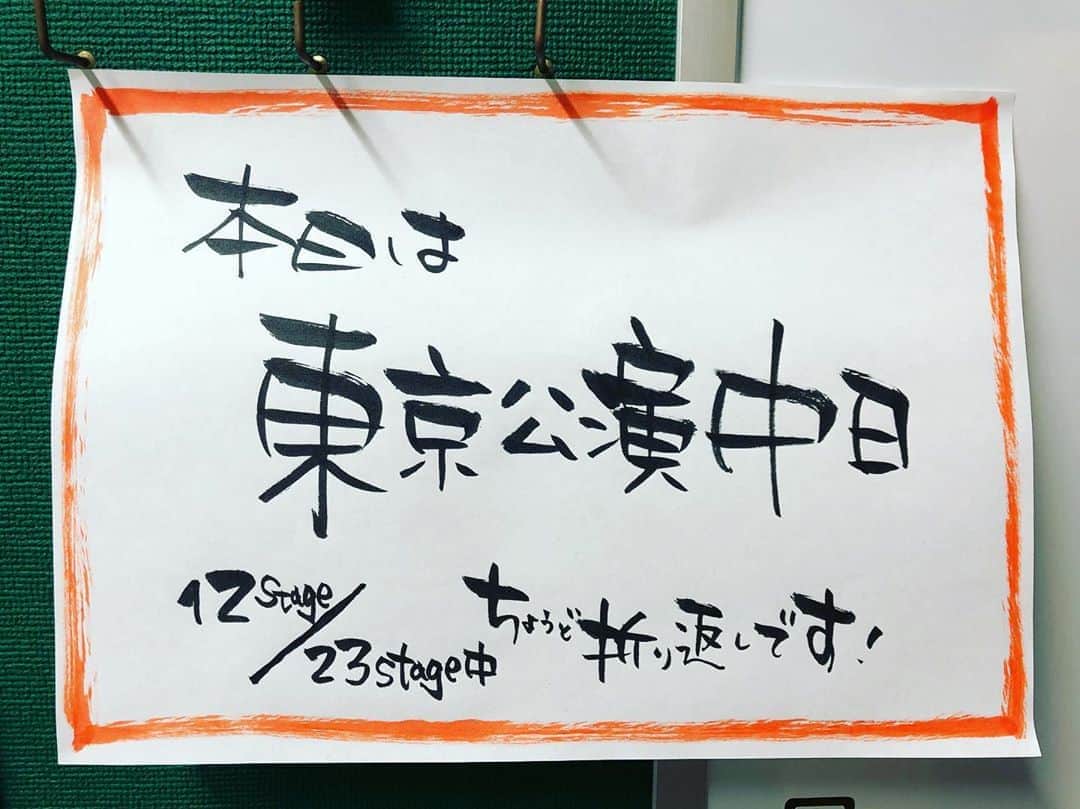 本日は
東京公演中日
12stage/23stage中 ちょうど折り返しです!